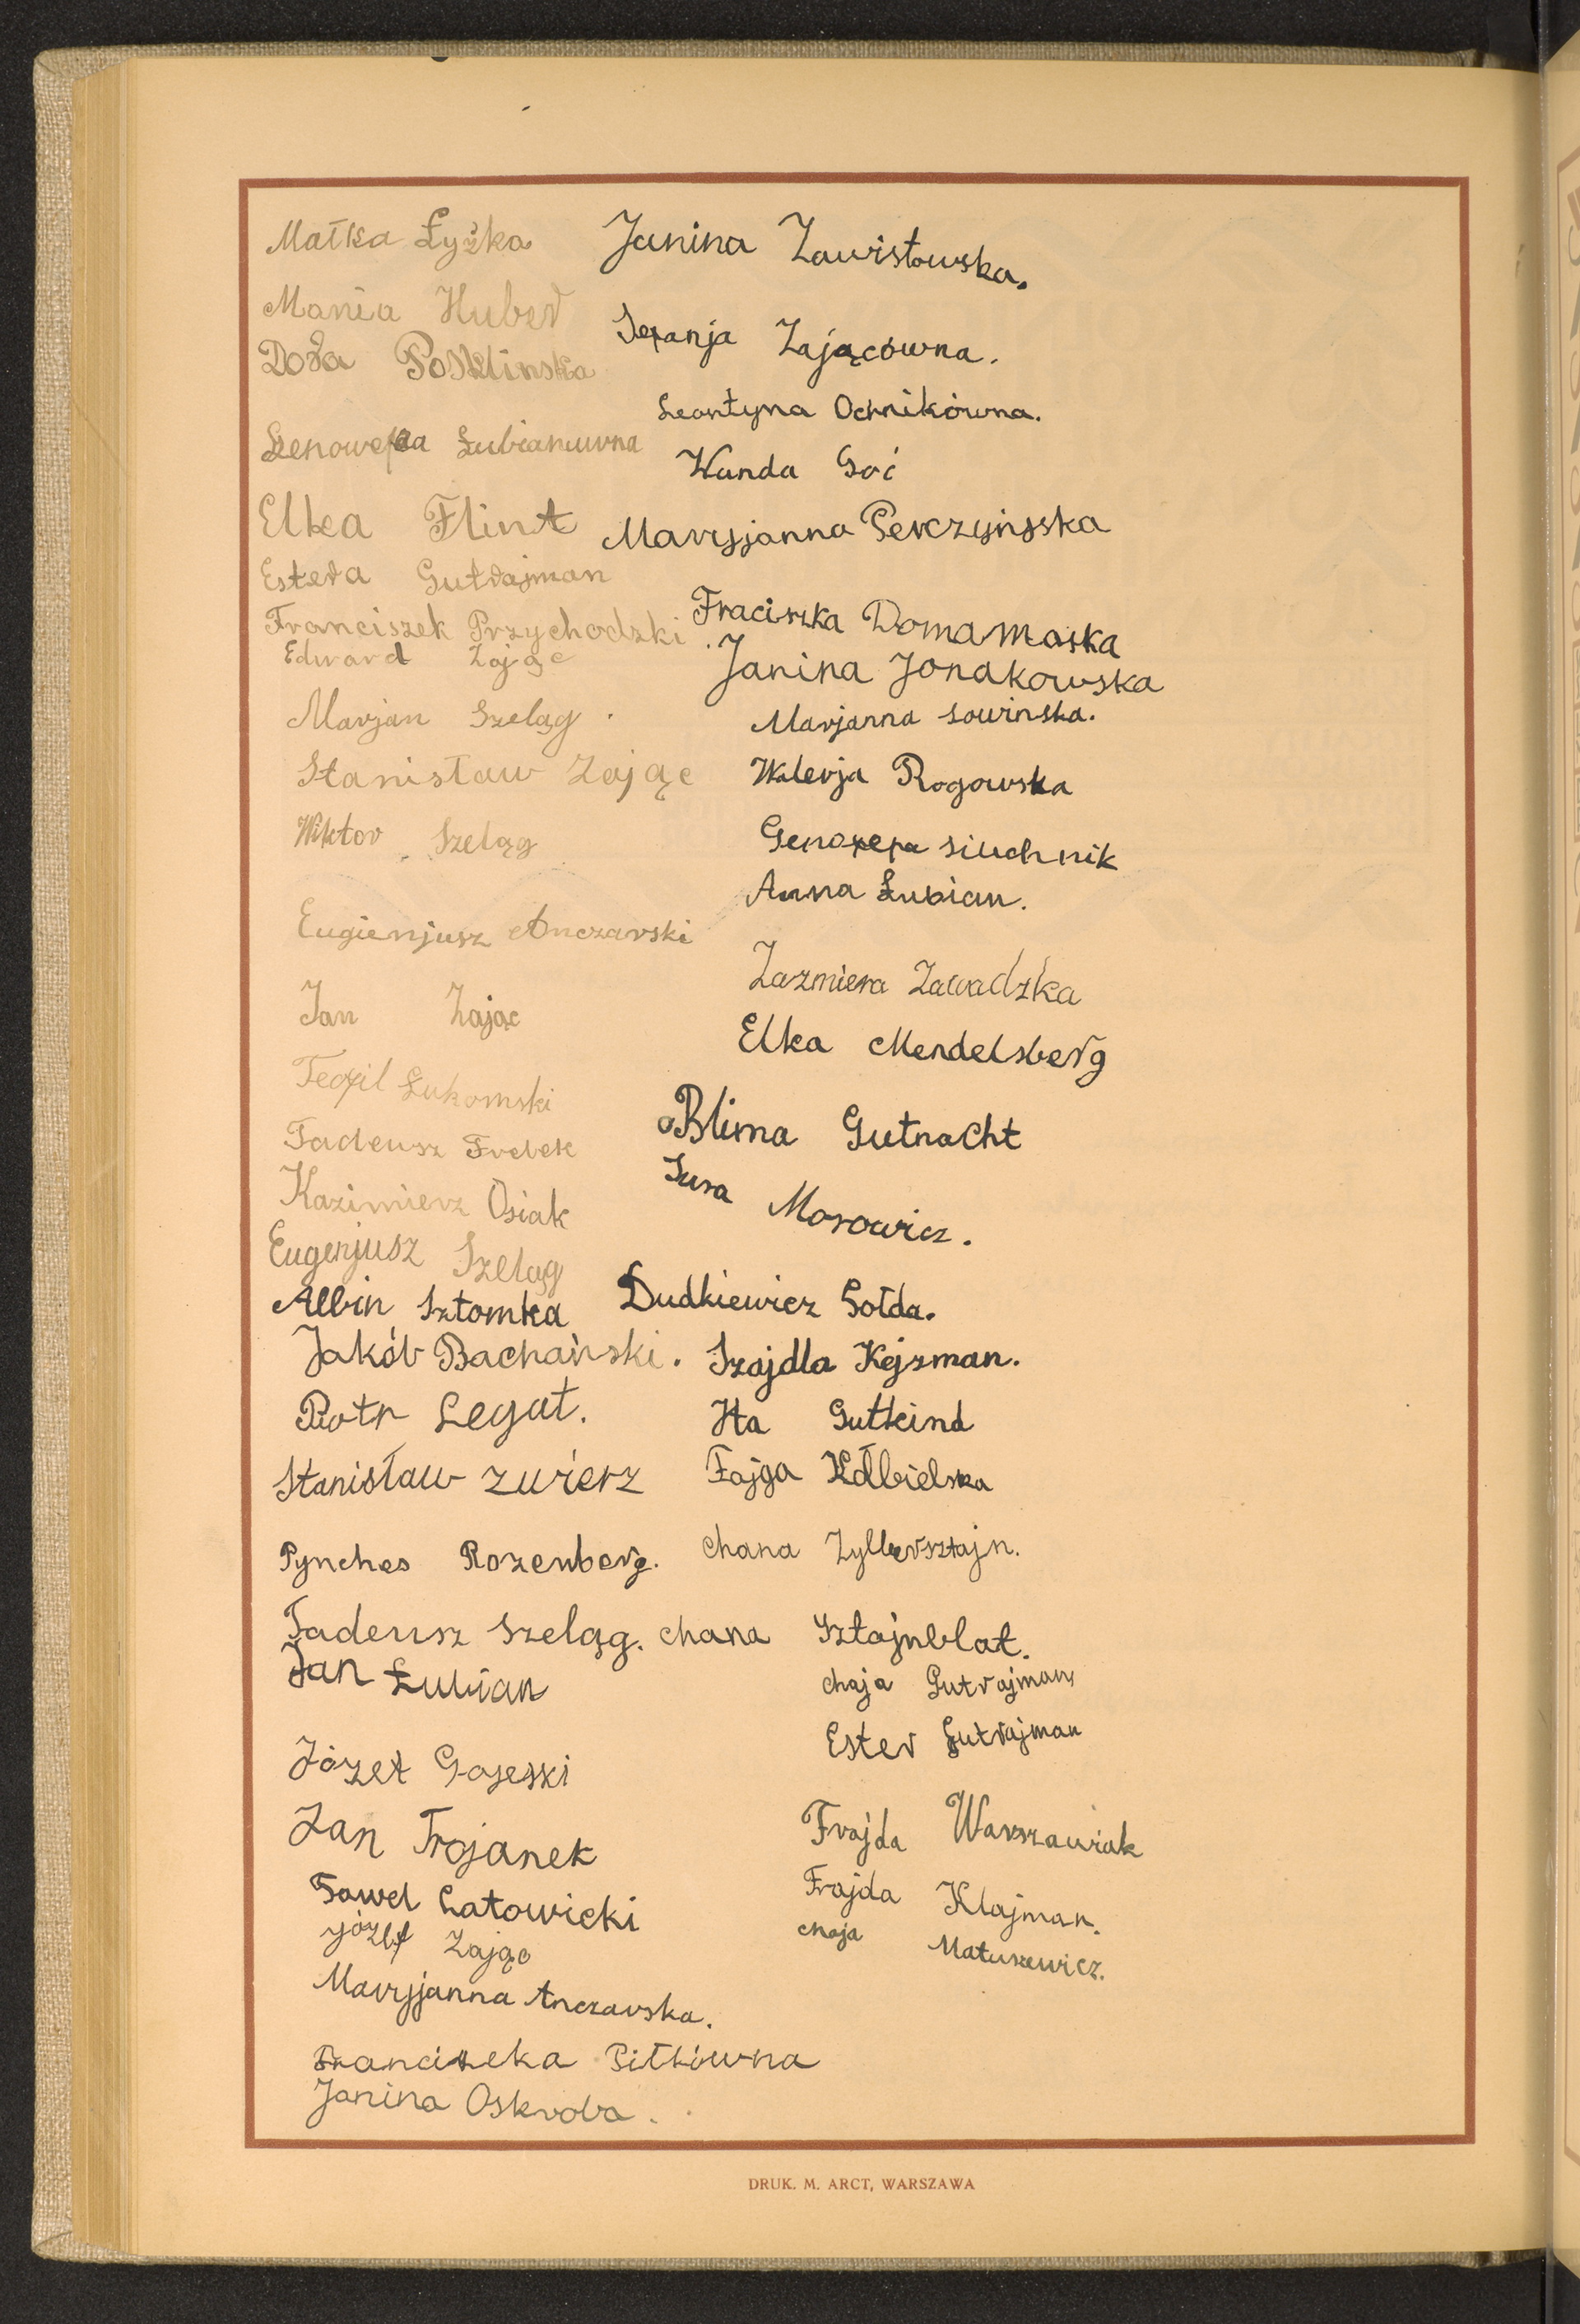 Małka Łyżka
Mania Huber
Dora
Elka Flint
Estera Gutrajman
Franciszek Przychodzki
Edward Zając
Marjan Szeląg.
Stanisław Zając
Wiktor Szeląg
Eugienjusz Anczarski
Jan Zając
Teofil Łukomski
Tadeusz Frelek
Kazimierz Osiak
Eugenjusz Szeląg
Albin Sztomka
Jakób Bachański.
Piotr Legat.
Stanisław Zwierz
Pynches Rozenberg.
Tadeusz Szeląg.
Jan Łubian
Józef
Jan Trojanek
Paweł Latowicki
Józef Zając
Maryjanna Anczarska.
Pitkówna
Janina Oskroba.
Janina Zawistowska.
Zającówna.
Leontyna Ochnikówna.
Wanda Goć
Maryjanna
Fraciszka
Janina Jonakowska
Marjanna Sowinska.
Walerja Rogowska
siuchnik
Anna Łubian.
Zawadzka
Elka Mendelsberg
Blima Gutnacht
Sura Morowicz.
Dudkiewicz Gołda.
Szajdla Kejzman.
Ita Gutkind
Fajga Kołbielska
Chana Zylbersztajn.
Chana Sztajnblat.
Chaja Gutrajman
Ester Gutrajman
Frajda Warszawiak
Frajda Klajman.
Chaja Matuszewicz.
DRUK. M. ARCT, WARSZAWA